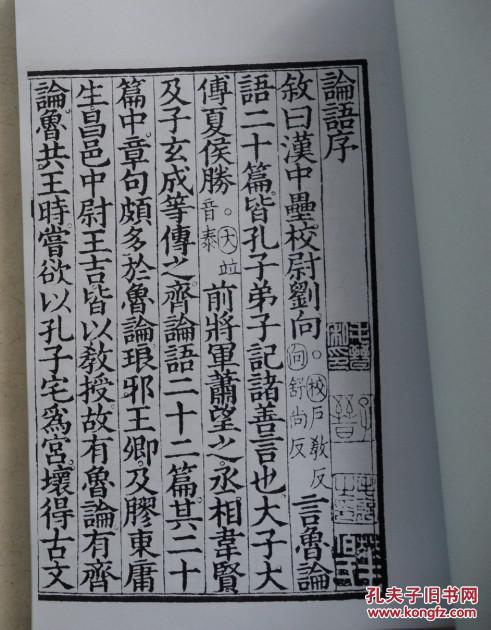 論語序
敘曰漢中壘校尉劉向。校戶教反向舒尚反言魯論
語二十篇皆孔子弟子記諸善言也大子大
傅夏侯勝。大並音泰前將軍蕭望之丞相韋賢
及子玄成等傳之齊論語二十二篇其二十
篇中章句頗多於魯論琅邪王卿及膠東庸
生昌邑中尉王吉皆以教授故有魯論有齊
論魯共王時嘗欲以孔子宅為宮壞得古文
孔夫子旧书网
www.kongfz.com